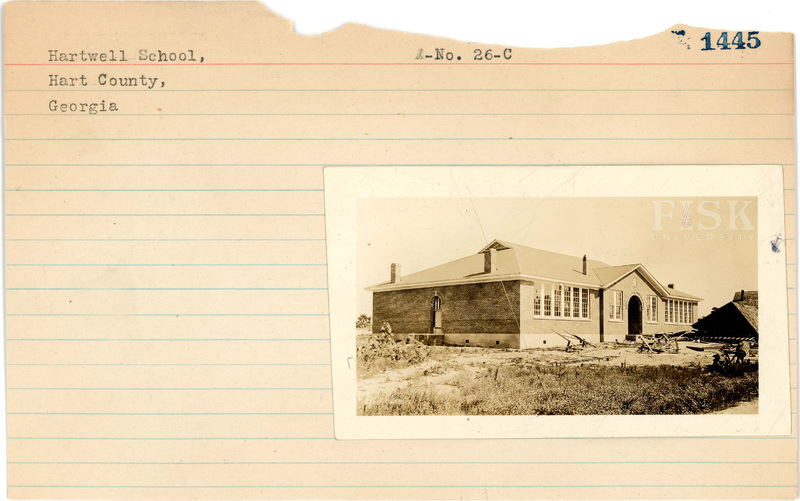 Hartwell School,
A-No. 26-C
1445
Hart County,
Georgia
FISK
UNIVERSITY